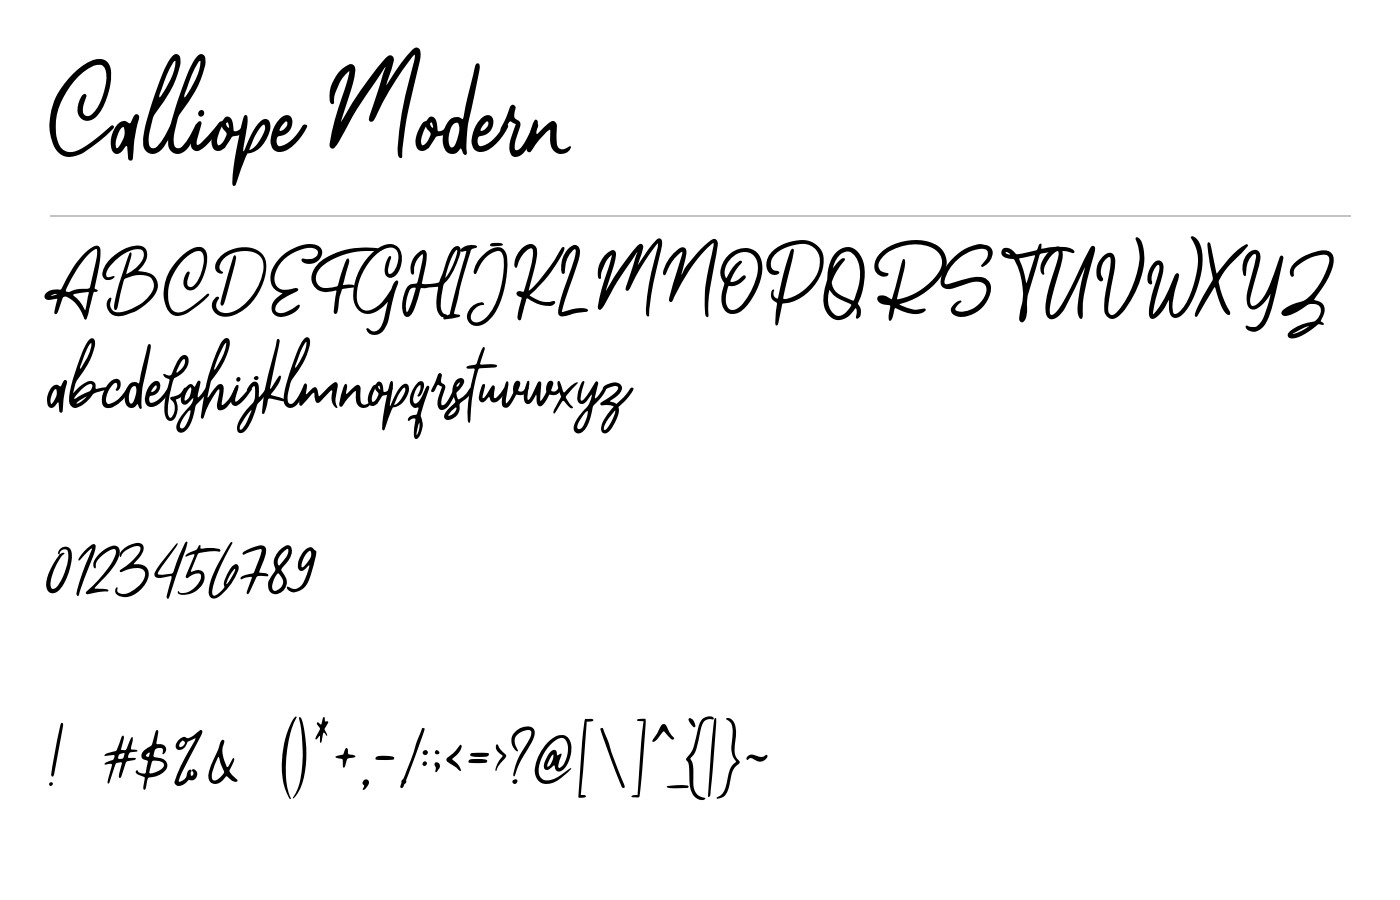 Calliope Modern
ABCDEFGHIJKLMNOPQRSTUVWXYZ
abcdefghijklmnopqrstuvwxyz
0123456789
! #$%& ()*+,-/:;<=>?@[\]^_`{|}~